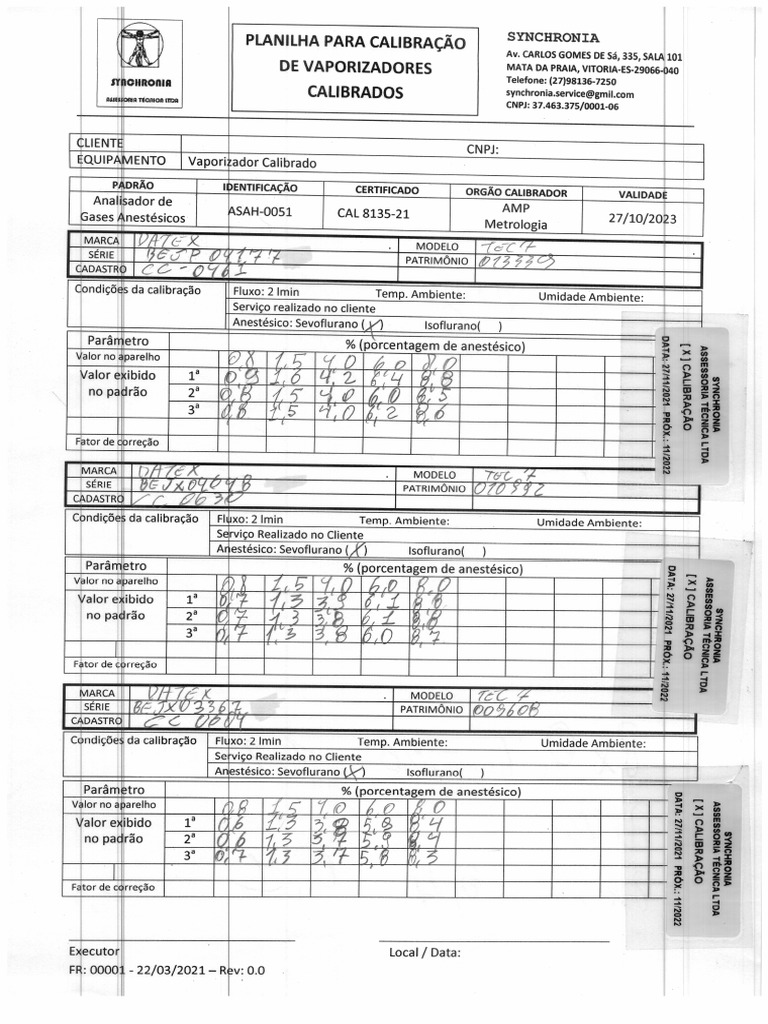 SYNCHRONIA
ASSESSORIA TÉCNICA LTDA
PLANILHA PARA CALIBRAÇÃO
DE VAPORIZADORES
CALIBRADOS
SYNCHRONIA
Av. CARLOS GOMES DE Sá, 335, SALA 101
MATA DA PRAIA, VITORIA-ES-29066-040
Telefone: (27)98136-7250
synchronia.service@gmil.com
CNPJ: 37.463.375/0001-06
CLIENTE CNPJ:
EQUIPAMENTO Vaporizador Calibrado
PADRÃO IDENTIFICAÇÃO CERTIFICADO ORGÃO CALIBRADOR VALIDADE
Analisador de Gases Anestésicos ASAH-0051 CAL 8135-21 AMP Metrologia 27/10/2023
MARCA DATEX MODELO TEC 7
SÉRIE BEJP 04177 PATRIMÔNIO 013339
CADASTRO CC-0461
Condições da calibração Fluxo: 2 lmin Temp. Ambiente: Umidade Ambiente:
Serviço realizado no cliente
Anestésico: Sevoflurano (X) Isoflurano( )
Parâmetro % (porcentagem de anestésico)
Valor no aparelho 0,8 1,5 4,0 6,0 8,0
Valor exibido no padrão
1ª 0,9 1,6 4,2 6,4 8,8
2ª 0,8 1,5 4,0 6,0 8,5
3ª 0,8 1,5 4,0 6,2 8,6
Fator de correção
SYNCHRONIA
ASSESSORIA TÉCNICA LTDA
[ X ] CALIBRAÇÃO
DATA: 27/11/2021 PRÓX.: 11/2022
MARCA DATEX MODELO TEC 7
SÉRIE PATRIMÔNIO 010992
CADASTRO CC 0630
Condições da calibração Fluxo: 2 lmin Temp. Ambiente: Umidade Ambiente:
Serviço Realizado no Cliente
Anestésico: Sevoflurano (X) Isoflurano( )
Parâmetro % (porcentagem de anestésico)
Valor no aparelho 0,8 1,5 4,0 6,0 8,0
Valor exibido no padrão
1ª 0,7 1,3 3,9 6,1 8,8
2ª 0,7 1,3 3,8 6,1 8,8
3ª 0,7 1,3 3,8 6,0 8,7
Fator de correção
SYNCHRONIA
ASSESSORIA TÉCNICA LTDA
[ X ] CALIBRAÇÃO
DATA: 27/11/2021 PRÓX.: 11/2022
MARCA DATEX MODELO TEC 7
SÉRIE BEJX03367 PATRIMÔNIO 009608
CADASTRO CC 0604
Condições da calibração Fluxo: 2 lmin Temp. Ambiente: Umidade Ambiente:
Serviço Realizado no Cliente
Anestésico: Sevoflurano (X) Isoflurano( )
Parâmetro % (porcentagem de anestésico)
Valor no aparelho 0,8 1,5 4,0 6,0 8,0
Valor exibido no padrão
1ª 0,6 1,3 3,8 5,8 8,4
2ª 0,6 1,3 3,7 5,9 8,4
3ª 0,7 1,3 3,7 5,8 8,3
Fator de correção
SYNCHRONIA
ASSESSORIA TÉCNICA LTDA
[ X ] CALIBRAÇÃO
DATA: 27/11/2021 PRÓX.: 11/2022
Executor Local / Data:
FR: 00001 - 22/03/2021 – Rev: 0.0